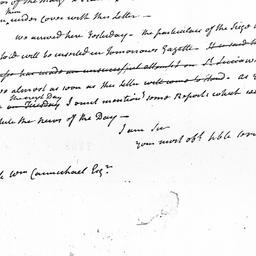 him
under cover with this letter.
We arrived here Yesterday - the particulars of the Seige
will be inserted in Tomorrows Gazette. It is said
has made an unsuccessful attempt on St Lucia
almost as soon as this letter will come to hand. as
the next Day
on Tuesday I must mention some Reports which
the news of the Day -
I am Sir
your most obt. hble
Wm Carmichael Esqr.